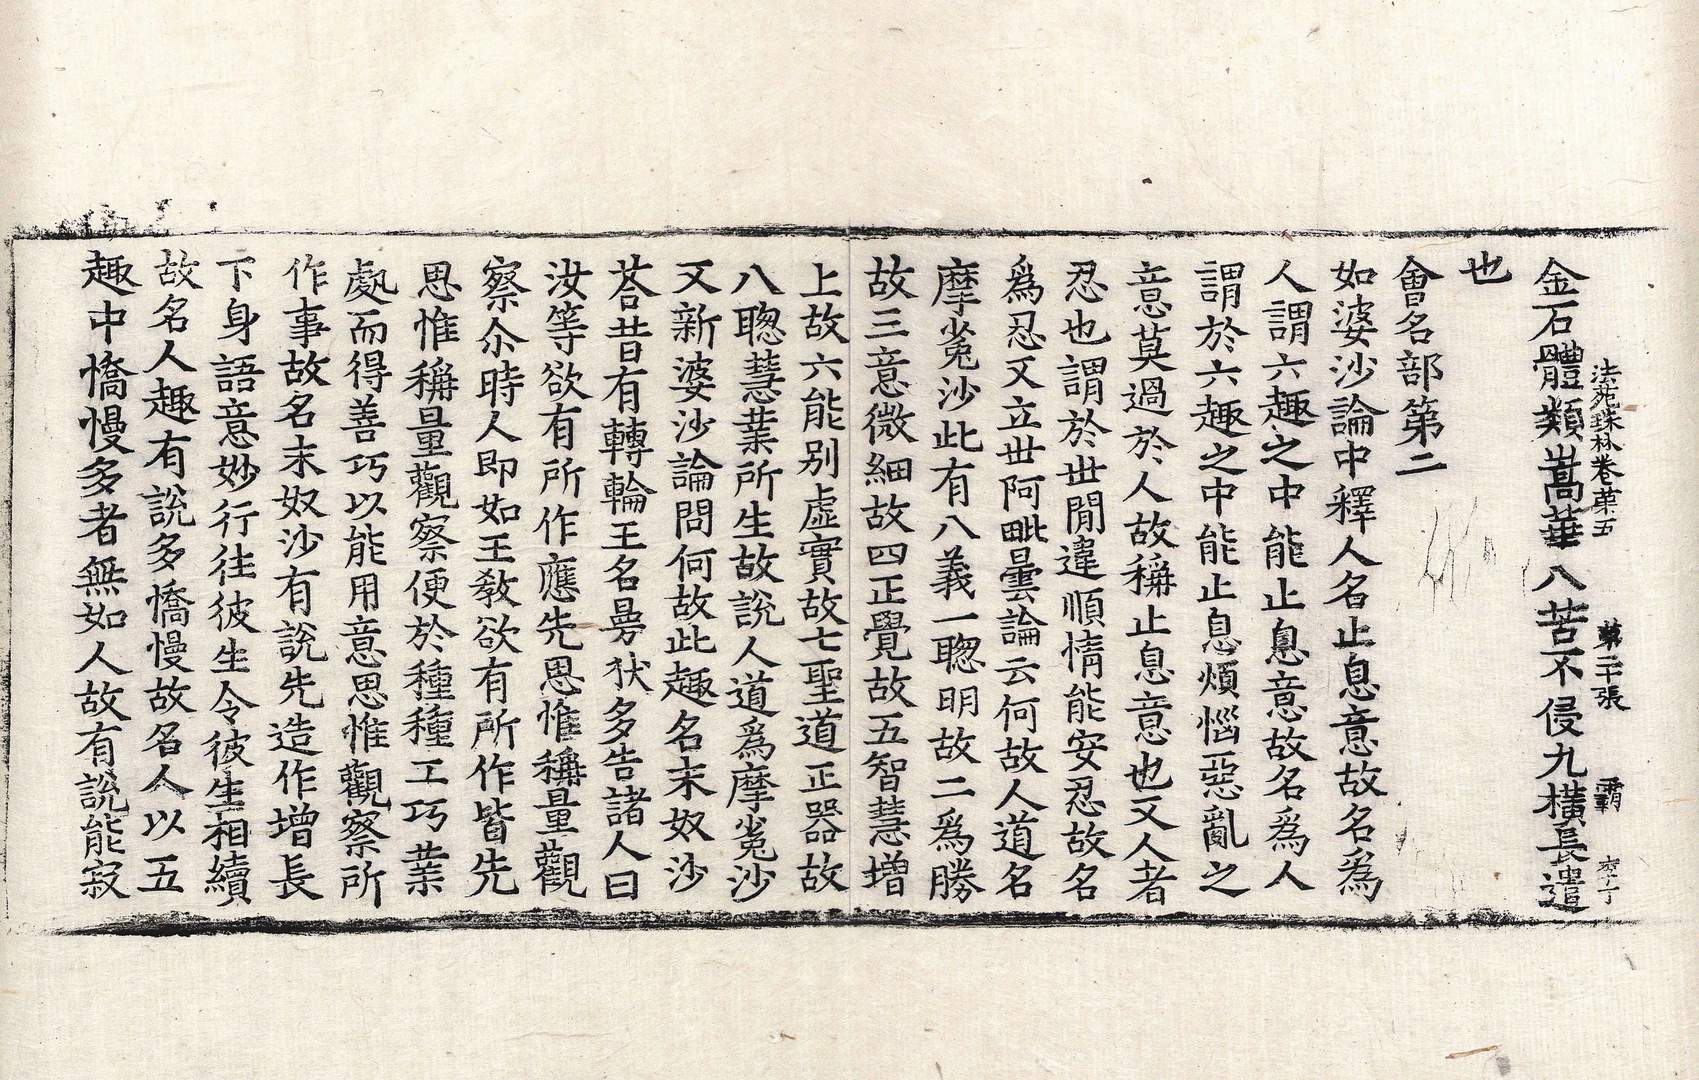 法苑珠林卷苐五 苐二十張 霸
金石體類嵩華八苦不侵九橫長遣
也
會名部第二
如婆沙論中釋人名止息意故名爲
人謂六趣之中能止息意故名爲人
謂於六趣之中能止息煩惱惡亂之
意莫過於人故稱止息意也又人者
忍也謂於世閒違順情能安忍故名
爲忍又立世阿毗曇論云何故人道名
摩㝹沙此有八義一聰明故二爲勝
故三意微細故四正覺故五智慧增
上故六能別虛實故七聖道正器故
八聰慧業所生故說人道爲摩㝹沙
又新婆沙論問何故此趣名末奴沙
荅昔有轉輪王名曼馱多告諸人曰
汝等欲有所作應先思惟稱量觀
察尒時人即如王教欲有所作皆先
思惟稱量觀察便於種種工巧業
處而得善巧以能用意思惟觀察所
作事故名末奴沙有說先造作增長
下身語意妙行往彼生令彼生相續
故名人趣有說多憍慢故名人以五
趣中憍慢多者無如人故有說能寂